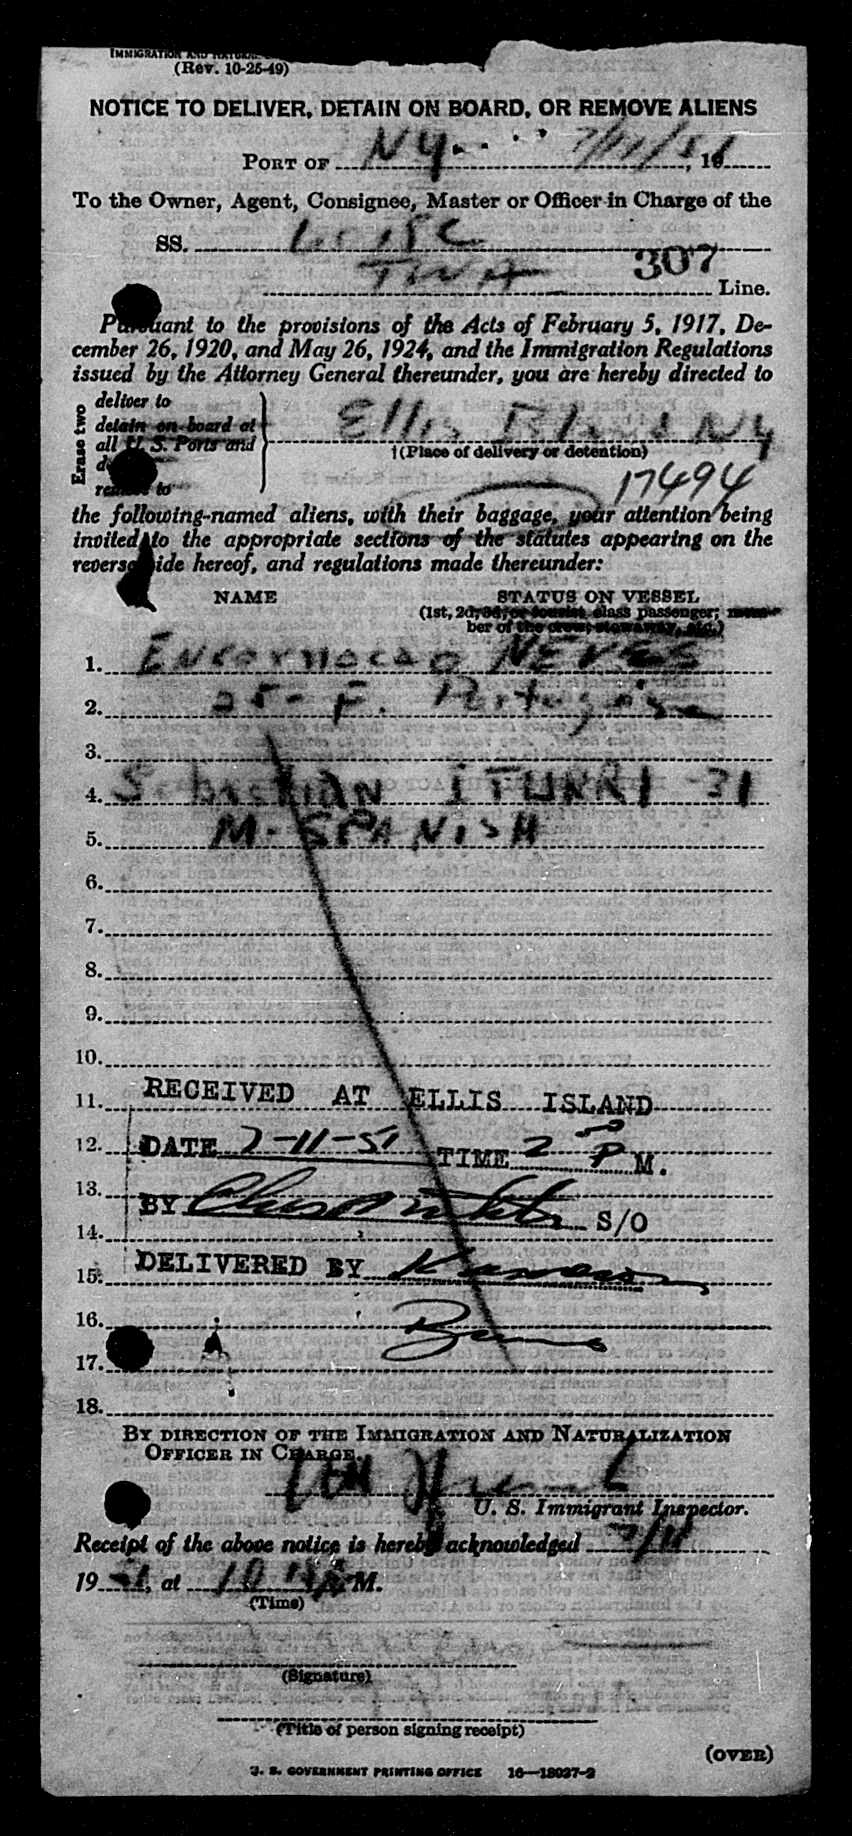 IMMIGRATION AND
(Rev. 10-25-49)
NOTICE TO DELIVER, DETAIN ON BOARD, OR REMOVE ALIENS
PORT OF NY 7/11/51, 19
To the Owner, Agent, Consignee, Master or Officer in Charge of the
SS.
TWA 307 Line.
Pursuant to the provisions of the Acts of February 5, 1917, De-
cember 26, 1920, and May 26, 1924, and the Immigration Regulations
issued by the Attorney General thereunder, you are hereby directed to
Erase two
deliver to
detain on board at
all U. S. Ports and
remove to
Ellis Island NY
†(Place of delivery or detention)
17494
the following-named aliens, with their baggage, your attention being
invited to the appropriate sections of the statutes appearing on the
reverse side hereof, and regulations made thereunder:
NAME STATUS ON VESSEL
(1st, 2d, 3d, or tourist class passenger; mem-
ber of the crew, stowaway, etc.)
1. Encarnacao NEVES
2. 25- F. Portuguese
3.
4. Sebastian ITURRI -31
5. M. SPANISH
6.
7.
8.
9.
10.
11. RECEIVED AT ELLIS ISLAND
12. DATE 7-11-51 TIME 2 00 P M.
13.
BY S/O
14.
15. DELIVERED BY
16.
17.
18.
BY DIRECTION OF THE IMMIGRATION AND NATURALIZATION
OFFICER IN CHARGE.
U. S. Immigrant Inspector.
Receipt of the above notice is hereby acknowledged 7/11
19 51, at 10 M.
(Time)
(Signature)
(Title of person signing receipt)
(OVER)
U. S. GOVERNMENT PRINTING OFFICE 16—18027-2